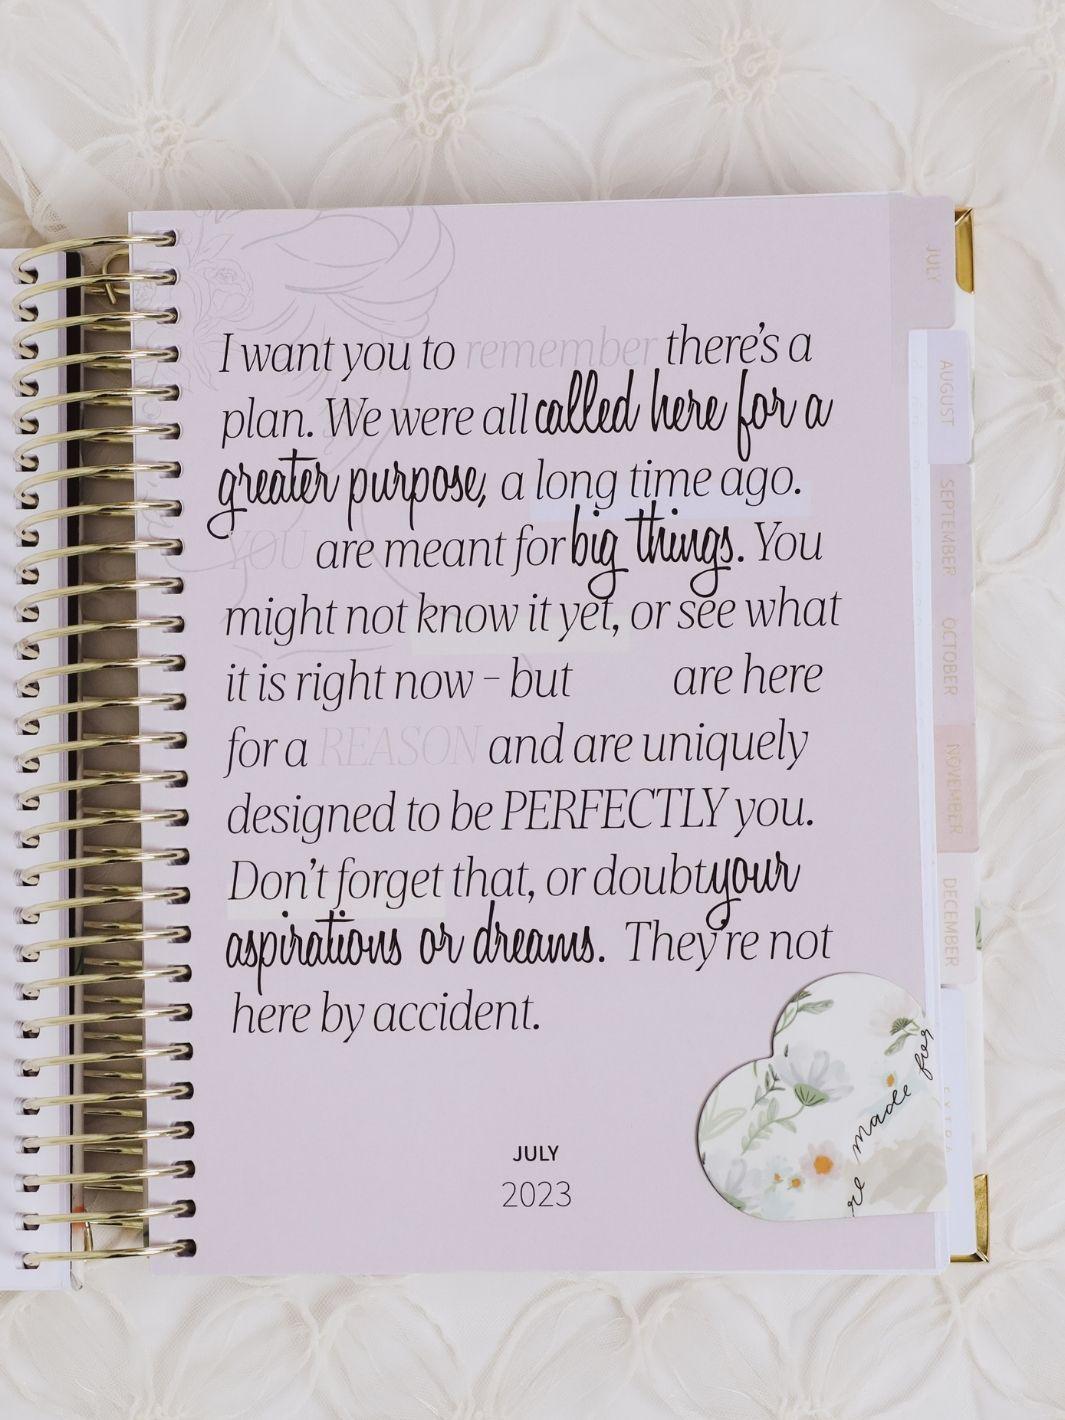 I want you to remember there's a
plan. We were all called here for a
greater purpose, a long time ago.
YOU are meant for big things. You
might not know it yet, or see what
it is right now - but are here
for a REASON and are uniquely
designed to be PERFECTLY you.
Don't forget that, or doubt your
aspirations or dreams. They're not
here by accident.
JULY
2023
re made for
JULY
AUGUST
SEPTEMBER
OCTOBER
NOVEMBER
DECEMBER
EXTRA